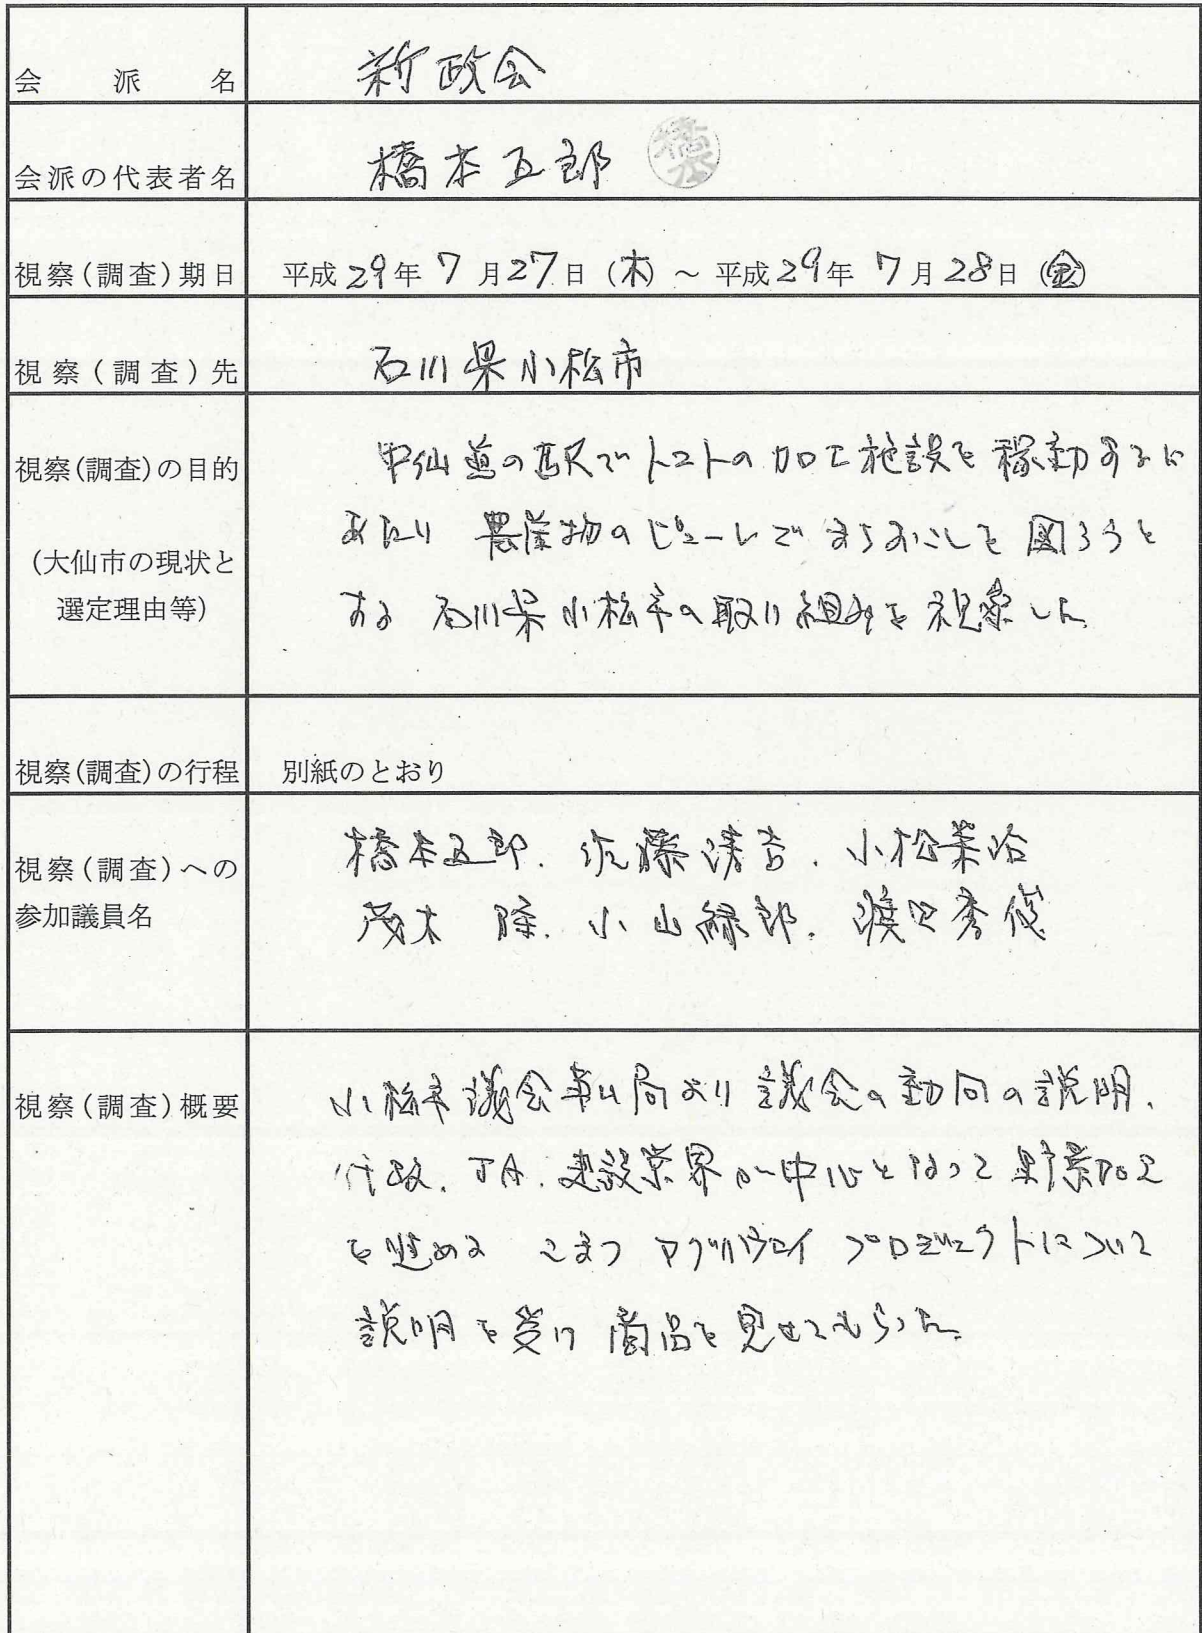 会派名 新政会
会派の代表者名 橋本五郎 橋本
視察(調査)期日 平成29年 7月27日(木)～平成29年 7月28日(金)
視察(調査)先 石川県小松市
視察(調査)の目的
(大仙市の現状と
選定理由等)
中仙道の駅でトマトの加工施設を稼動するに
あたり 農産物のピューレでまちおこしを図ろうと
する 石川県小松市の取り組みを視察した
視察(調査)の行程 別紙のとおり
視察(調査)への
参加議員名
橋本五郎. 佐藤清吉. 小松栄治
茂木 隆. 小山緑郎. 渡辺秀俊
視察(調査)概要
小松市議会事ム局より議会の動向の説明.
行政. JA. 建設業界が中心となって
を進める こまつ アグリウエイ プロジェクトについて
説明を受け 商品を見せてもらった.